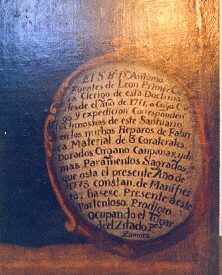 El S.r B.r D.n Antonio
Fuentes de Leon Primer C
Clerigo de esta Doctrina
desde el año de 1711, a Cuyo C
y expedicion Corresponden
limosñas de este Santuario
en los muchos Reparos de Fabri
ca Material de
Dorados Organo Campanas, y de
mas Paramentos Sagrados,
que asta el presente Año de
1775 constan, de Manifies
to: hasese Presente deste
Portentoso, Prodigio
Ocupando el lugar
del Zitado
Zamora